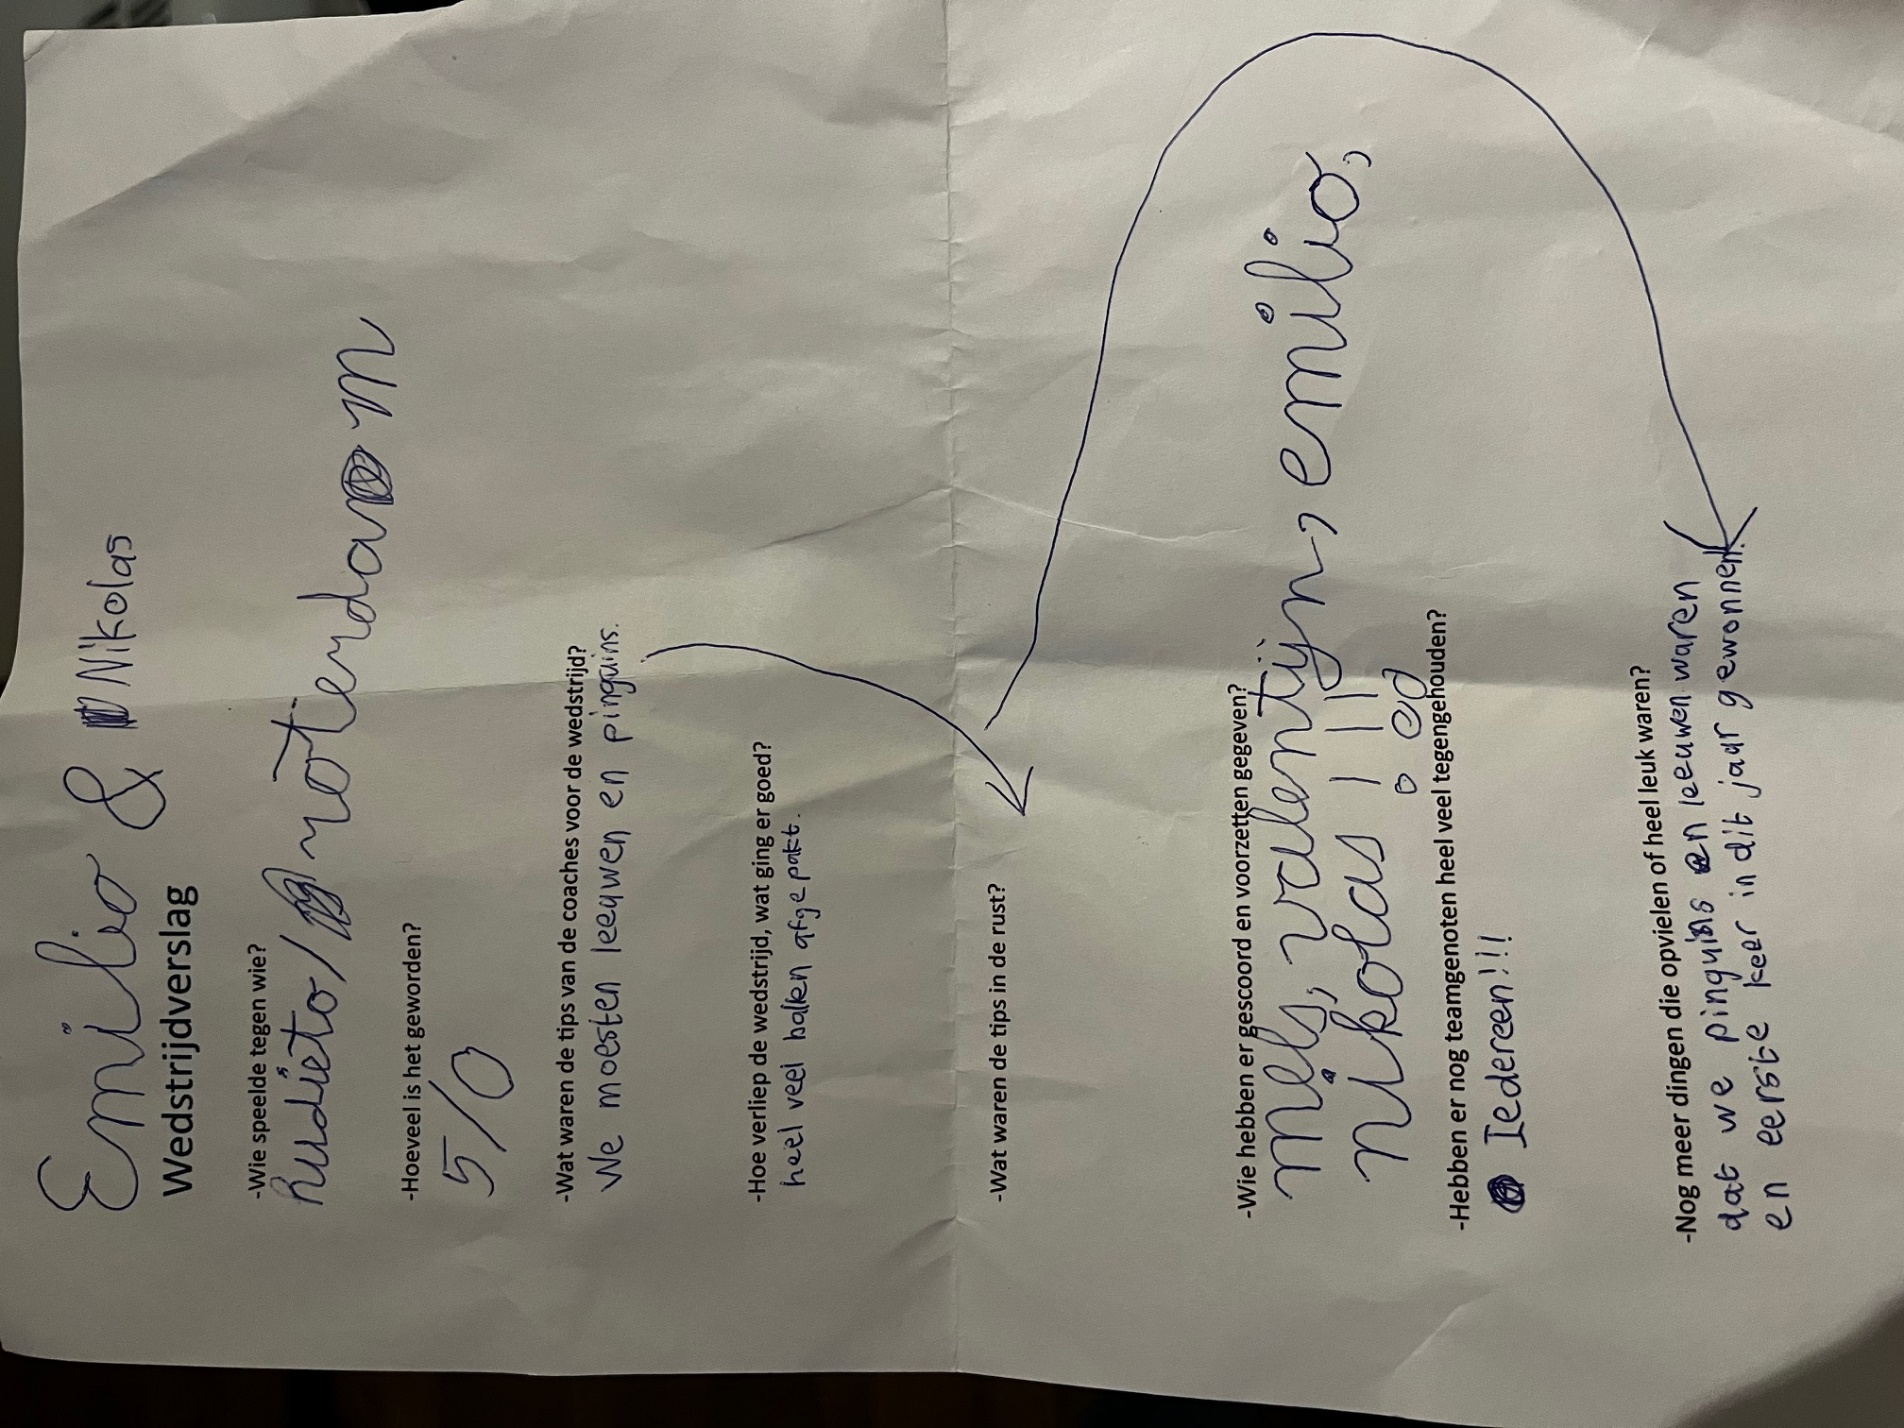 Emilio & Nikolas
Wedstrijdverslag
-Wie speelde tegen wie?
hudieto/ noterdam
-Hoeveel is het geworden?
5/0
-Wat waren de tips van de coaches voor de wedstrijd?
We moesten leeuwen en pinguins.
-Hoe verliep de wedstrijd, wat ging er goed?
heel veel ballen afgepakt.
-Wat waren de tips in de rust?
-Wie hebben er gescoord en voorzetten gegeven?
mels, valentijn, emilio,
nikolas
-Hebben er nog teamgenoten heel veel tegengehouden?
Iedereen!!!
-Nog meer dingen die opvielen of heel leuk waren?
dat we pinguins en leeuwen waren
en eerste keer in dit jaar gewonnen.